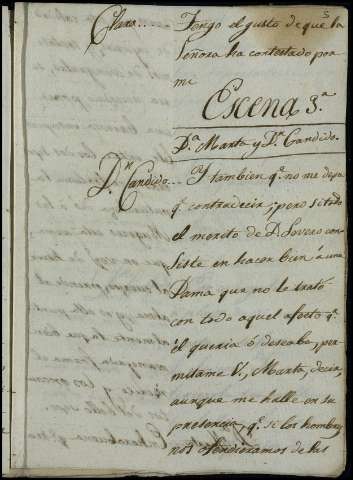 Claro.... Tengo el gusto de qe. la
Señora ha contestado por
mi
Escena 3.a
D.a Marta y Dn. Candido.
Dn. Candido... Y tambien qe. no me deja
qe. contradecir; pero si todo
el merito de D. Lovero con
siste en hacer bien á una
Dama que no le trató
con todo aquel afecto qe.
él queria ó deseaba, per
mitame V., Marta, decir,
aunque me halle en su
presencia, qe. si los hombres
nos ofendieramos de las